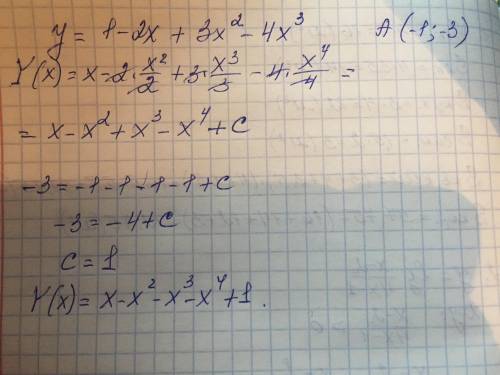 y = 1 - 2x + 3x² - 4x³ A (-1; -3)
Y(x) = x - 2·x²/2 + 3·x³/3 - 4·x⁴/4 =
= x - x² + x³ - x⁴ + C
-3 = -1 - 1 - 1 - 1 + C
-3 = -4 + C
C = 1
Y(x) = x - x² - x³ - x⁴ + 1.